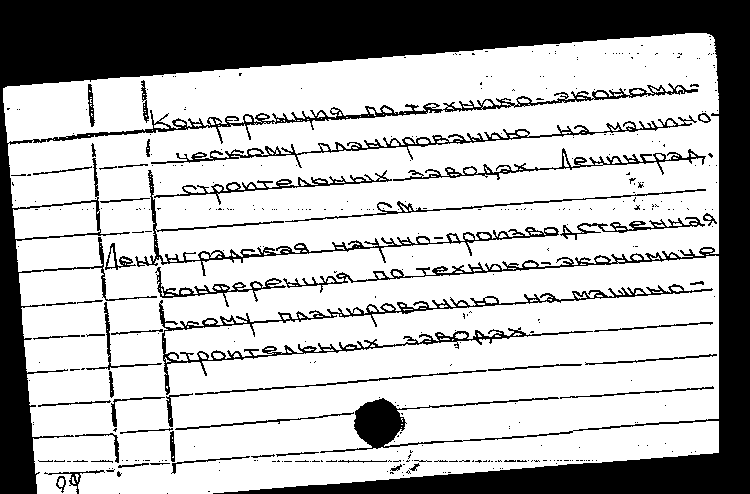 Конференция по технико-экономи-
ческому планированию на машино-
строительных заводах. Ленинград,.
см.
Ленинградская научно-производственная
конференция по технико-экономиче
скому планированию на машино-
строительных заводах.